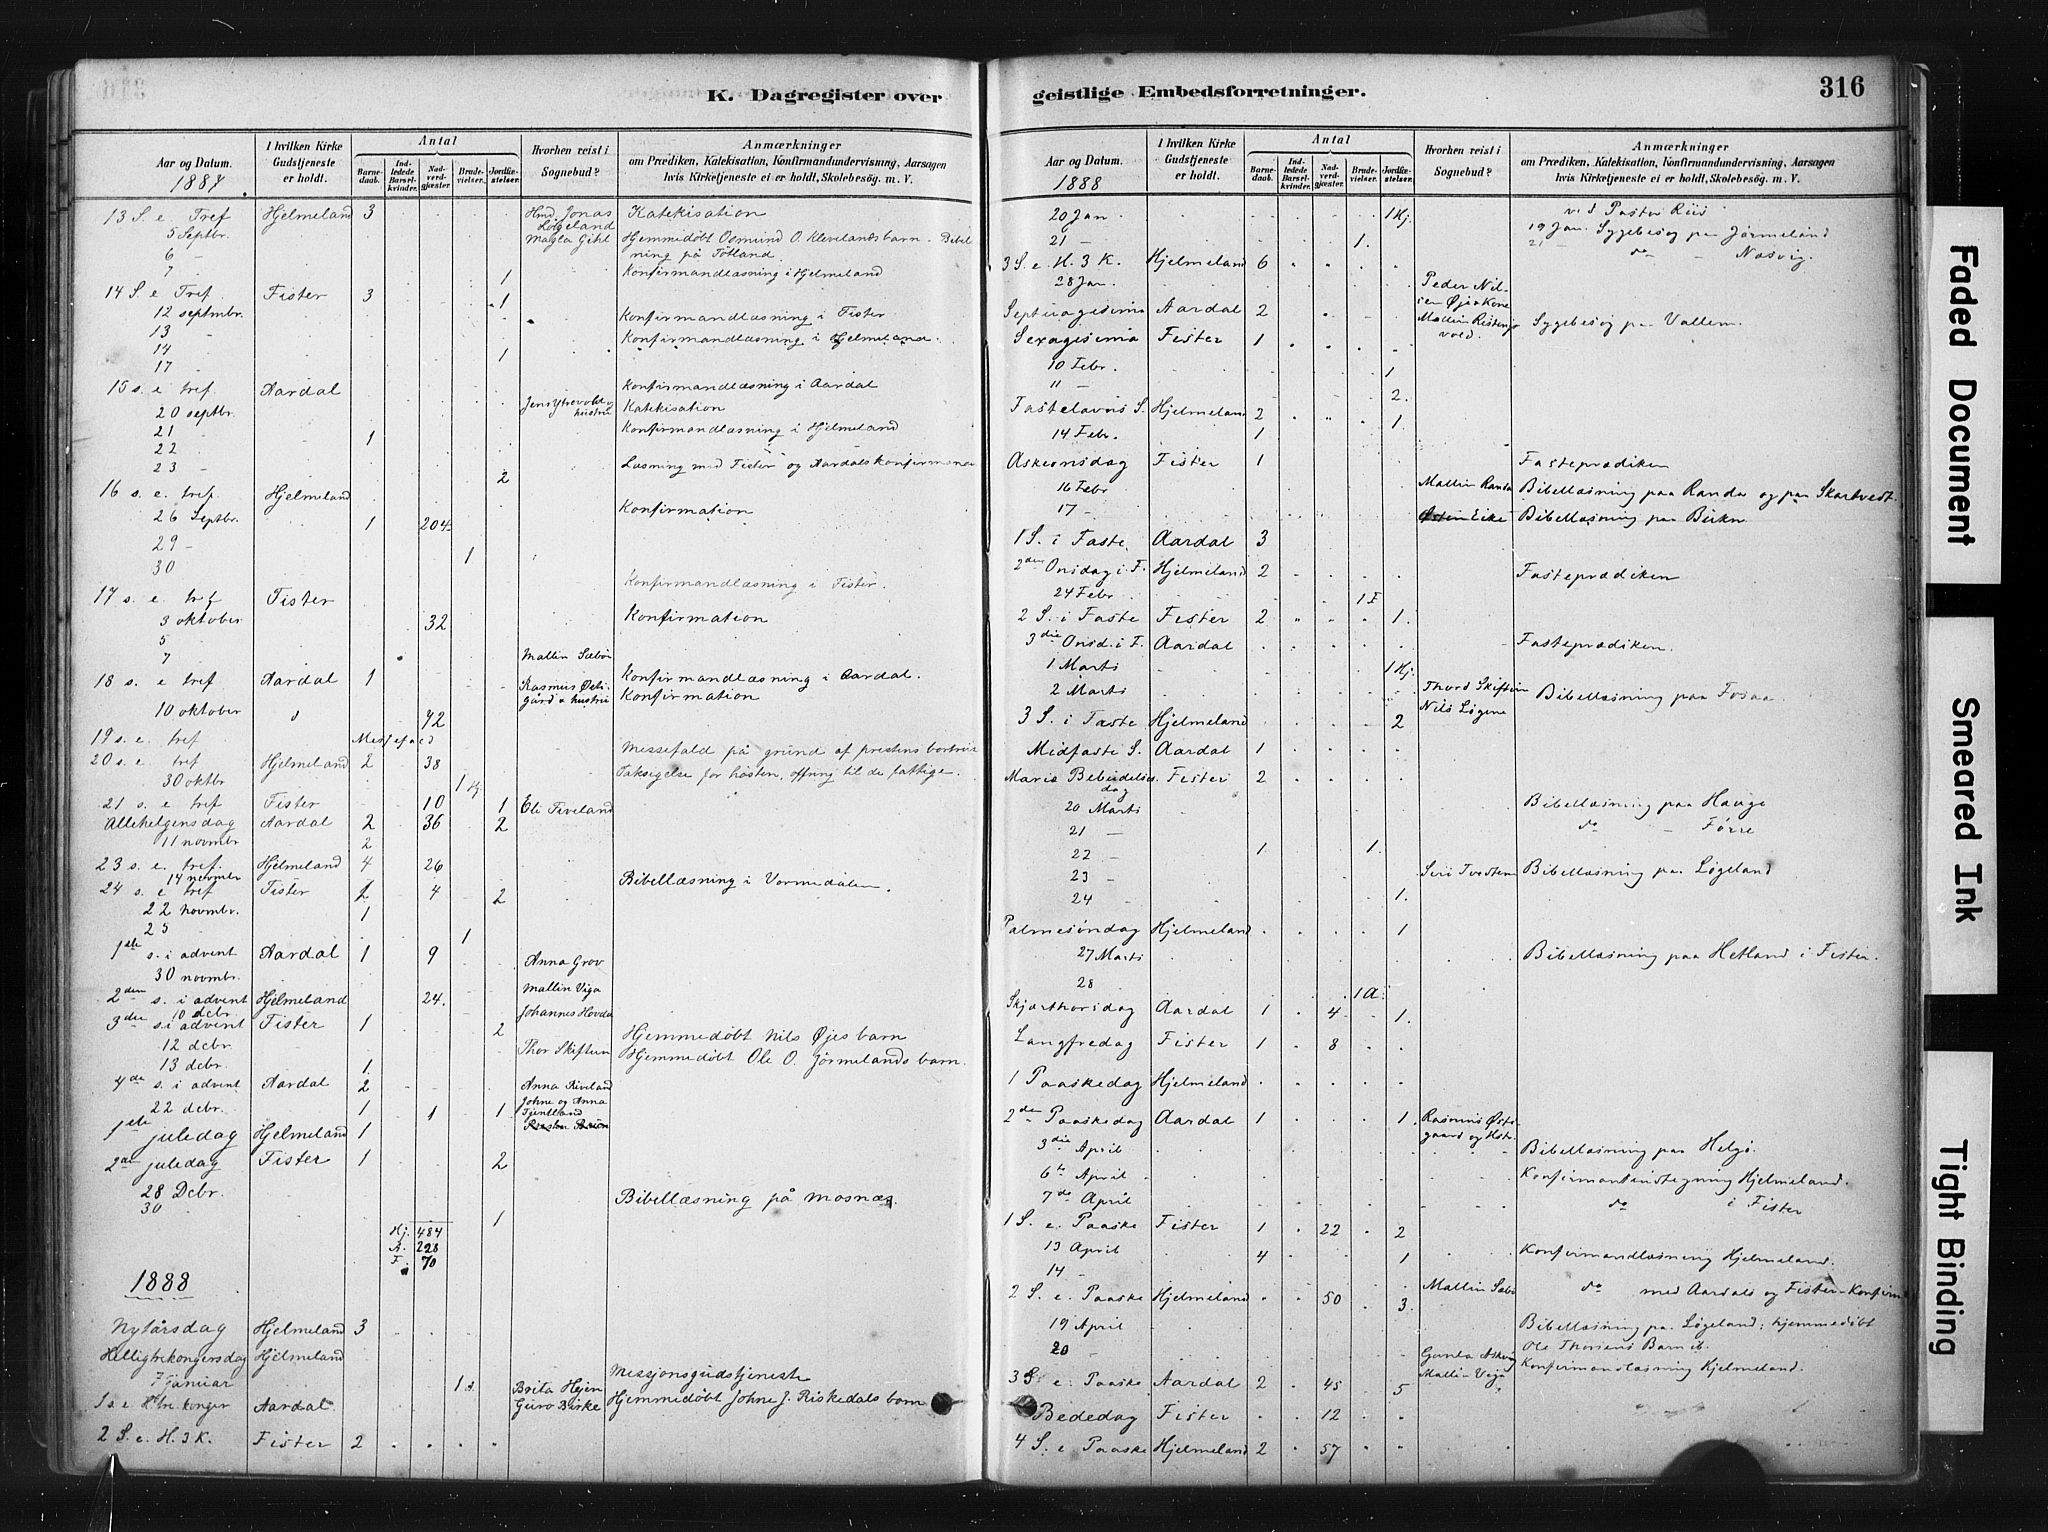 316
K. Dagregister over
geistlige Embedsforretninger.
Aar og Datum.
1887
I hvilken Kirke Gudstjeneste er holdt.
Antal
Barnedaab.
Indledede Barselkvinder.
Nadverdgjæster.
Brudevielser.
Jordfæstelser.
Hvorhen reist i Sognebud?
Anmærkninger
om Prædiken, Katekisation, Konfirmandundervisning, Aarsagen
hvis Kirketjeneste ei er holdt, Skolebesög. m. V.
13 S. e. Tref Hjelmeland 3 Jonas Katekisation
5 Septbr. Løgeland
6 - Hjemmedøbt Osmund O. Klevelands barn. Bibel
ning på Tøtland
7 1 Konfirmandlæsning i Hjelmeland
14 S. e Tref Fister 3 1
12 septmbr. Konfirmandlæsning i Fister
13 -
14 Konfirmandlæsning i Hjelmeland.
17 - 1
15 s. e tref Aardal Konfirmandlæsning i Aardal
20 septbr. hustru Katekisation
21 - Konfirmandlæsning i Hjelmeland
22 - 1
23 - 2 Læsning med Fister og Aardals konfirmana
16 s. e. tref Hjelmeland
26 Septbr. 1 204 Konfirmation
29 -
30 1
Konfirmandlæsning i Fister.
17 s. e. tref Fister
3 oktober 32 Konfirmation
5
7 Mallin Sæbø
18 s. e tref Aardal 1 Rasmus Østi- Konfirmandlæsning i Aardal.
10 oktober 42 gård & hustru Konfirmation
19 s. e. tref Messefald Messefald på grund af prestens bortreise
20 s. e tref Hjelmeland 2 38 Taksigelse for høsten, offring til de fattige.
30 oktbr 1 Hj.
21 s. e tref Fister 10 1 Eli Tiveland
Allehelgensdag Aardal 2 36 2
11 novmbr 2
23 s. e. tref. Hjelmeland 4 26
14 novmbr Bibellæsning i Vormedalen.
24 s. e tref Fister 4 2
22 novmbr. 1
25 1
1ste s. i advent Aardal 1 9 Anna Grov
30 novmbr. Mallin Viga
2den s. i advent Hjelmeland 24.
10 dcbr. Johannes Hovda
3die s. i advent Fister 1 2 Hjemmedøbt Nils Øjes barn
12 dcbr. Thor Skiftun Hjemmedøbt Ole O. Jørmelands barn.
13 dcbr. 1.
4de s. i advent Aardal 2 Anna Riveland
22 dcbr. 1 1 1 Johne og Anna
Tjentland
1ste juledag Hjelmeland 1
2den juledag Fister 1 2
28 Dcbr. Bibellæsning på Mosnæs.
30 1
Hj. 484
A. 228
F. 70
1888
Nytårsdag Hjelmeland 3
Helligtrekongersdag Hjelmeland
7 januar 1 A. Messjonsgudstjeneste
1 s e H. tre konger Aardal Brita Hejen Guro Birke Hjemmedøbt Johne J. Riskedals barn
2 S. e. H. 3 K. Fister 2
Aar og Datum.
1888
I hvilken Kirke Gudstjeneste er holdt.
Antal
Barnedaab.
Indledede Barselkvinder.
Nadverdgjæster.
Brudevielser.
Jordfæstelser.
Hvorhen reist i Sognebud?
Anmærkninger
om Prædiken, Katekisation, Konfirmandundervisning, Aarsagen
hvis Kirketjeneste ei er holdt, Skolebesög. m. V.
20 Jan. 1 Hj. ved Pastor Riis
21 - 1. 19 Jan. Sygebesøg paa Jørmeland
21 - do - Næsvig.
3 S. e. H. 3 K. Hjelmeland 6
28 Jan. Peder Nil-
sen Øje & Kone
Septuagesima Aardal 2 Mallin Ristesvold Sygebesøg paa Vallem.
Sexagesima Fister 1
10 Febr. 1
11 - 2.
Fastelavns S. Hjelmeland 2 1.
14 Febr. 1
Askeonsdag Fister 1 Fasteprædiken
16 Febr Mallin Randa Bibellæsning paa Randa og paa Skartvedt.
17 - Østen Eike Bibellæsning paa Birkn
1 S. i Faste. Aardal 3
2den Onsdag i F. Hjelmeland 2 Fasteprædiken
24 Febr 1 F
2 S. i Faste Fister 2 1.
3die Onsd. i F. Aardal Fasteprædiken.
1 Marts 1 Hj.
2 Marts Thord Skiftun Bibellæsning paa Fosaa
3 S. i Faste Hjelmeland 2 Nils Løgene
Midfaste S. Aardal 1
Mariæ Bebudelsesdag Fister 2
20 Marts Bibellæsning paa Hauge
21 - do - Førre
22 - 1 1.
23 - Siri Tvesten Bibellæsning paa Løgeland
24 - 1.
Palmesøndag Hjelmeland 1
27 Marts Bibellæsning paa Hetland i Fister.
28 1 A.
Skjærthorsdag Aardal 1 4 1.
Langfredag Fister 1 8
1 Paaskedag Hjelmeland
2den Paaskedag Aardal 1 1 Rasmus Østi-
gaard og Hstr.
3die April Bibellæsning paa Helgø.
6te April Konfirmantinstegning Hjelmeland.
7de April do i Fister
1 S. e. Paaske Fister 1 22 2
13 April 4 1 Konfirmandlæsning Hjelmeland.
14 - Mallin Sæbø do med Aardals og Fister-Konfirm
2 S. e. Paaske Hjelmeland 50 3.
19 April Bibellæsning paa Løgeland; hjemmedøbt
20 Ole Thorsens Barn ib.
Mallin Viga Konfirmantlæsning Hjelmeland.
3 S. e. Paaske Aardal 2 45 5
Bededag Fister 12
4 S. e Paaske Hjelmeland 2 57
Faded Document
Smeared Ink
Tight Binding